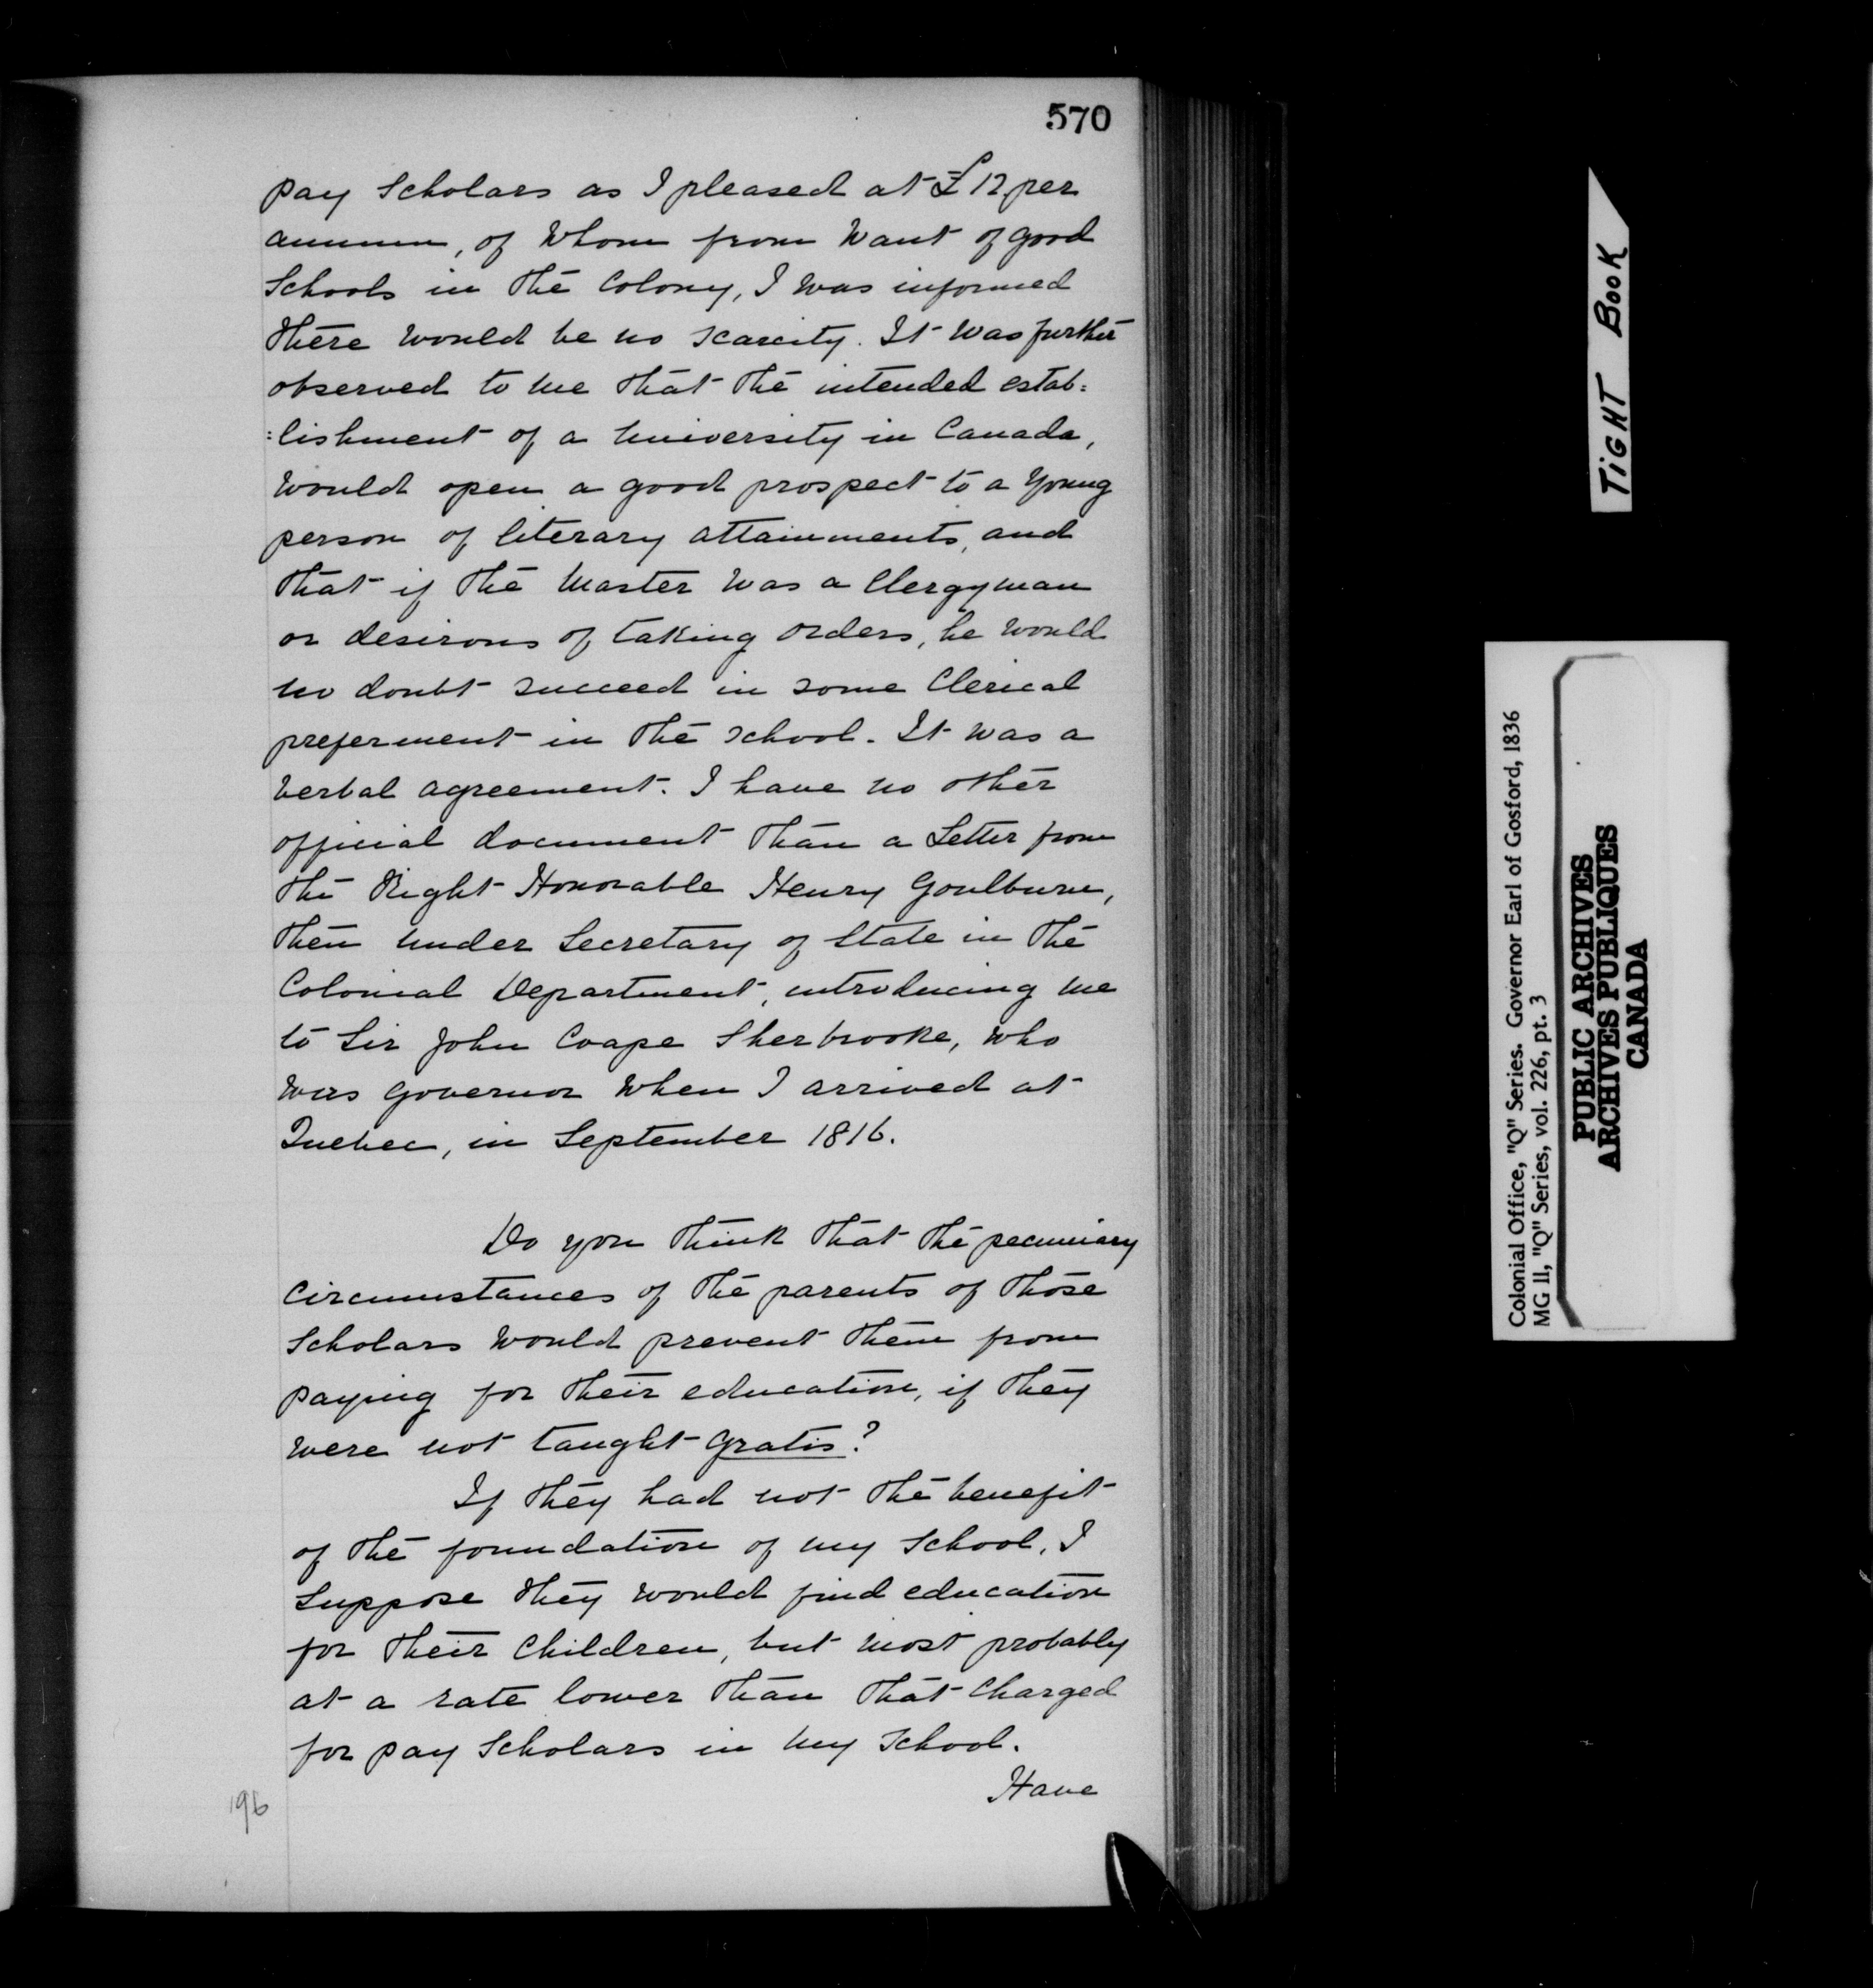 570
pay Scholars as I pleased at £12 per
annum, of Whom from Want of good
Schools in the Colony, I was informed
there would be no scarcity. It was further
observed to me that the intended estab=
=lishment of a University in Canada,
would open a good prospect to a Young
person of literary attainments, and
that if the Master was a Clergyman
or desirous of taking orders, he would
no doubt succeed in some Clerical
preferment in the school. It was a
verbal agreement. I have no other
official document than a Letter from
the Right Honorable Henry Goulburn,
then Under Secretary of State in the
Colonial Department, introducing me
to Sir John Coape Sherbrooke, who
was Governor when I arrived at
Quebec, in September 1816.
Do you think that the pecuniary
Circumstances of the parents of those
Scholars would prevent them from
paying for their education, if they
were not taught gratis?
If they had not the benefit
of the foundation of my School, I
Suppose they would find education
for their Children, but most probably
at a rate lower than that Charged
for pay Scholars in my School.
Have
196
TIGHT BOOK
Colonial Office, "Q" Series. Governor Earl of Gosford, 1836
MG 11, "Q" Series, vol. 226, pt. 3
PUBLIC ARCHIVES
ARCHIVES PUBLIQUES
CANADA